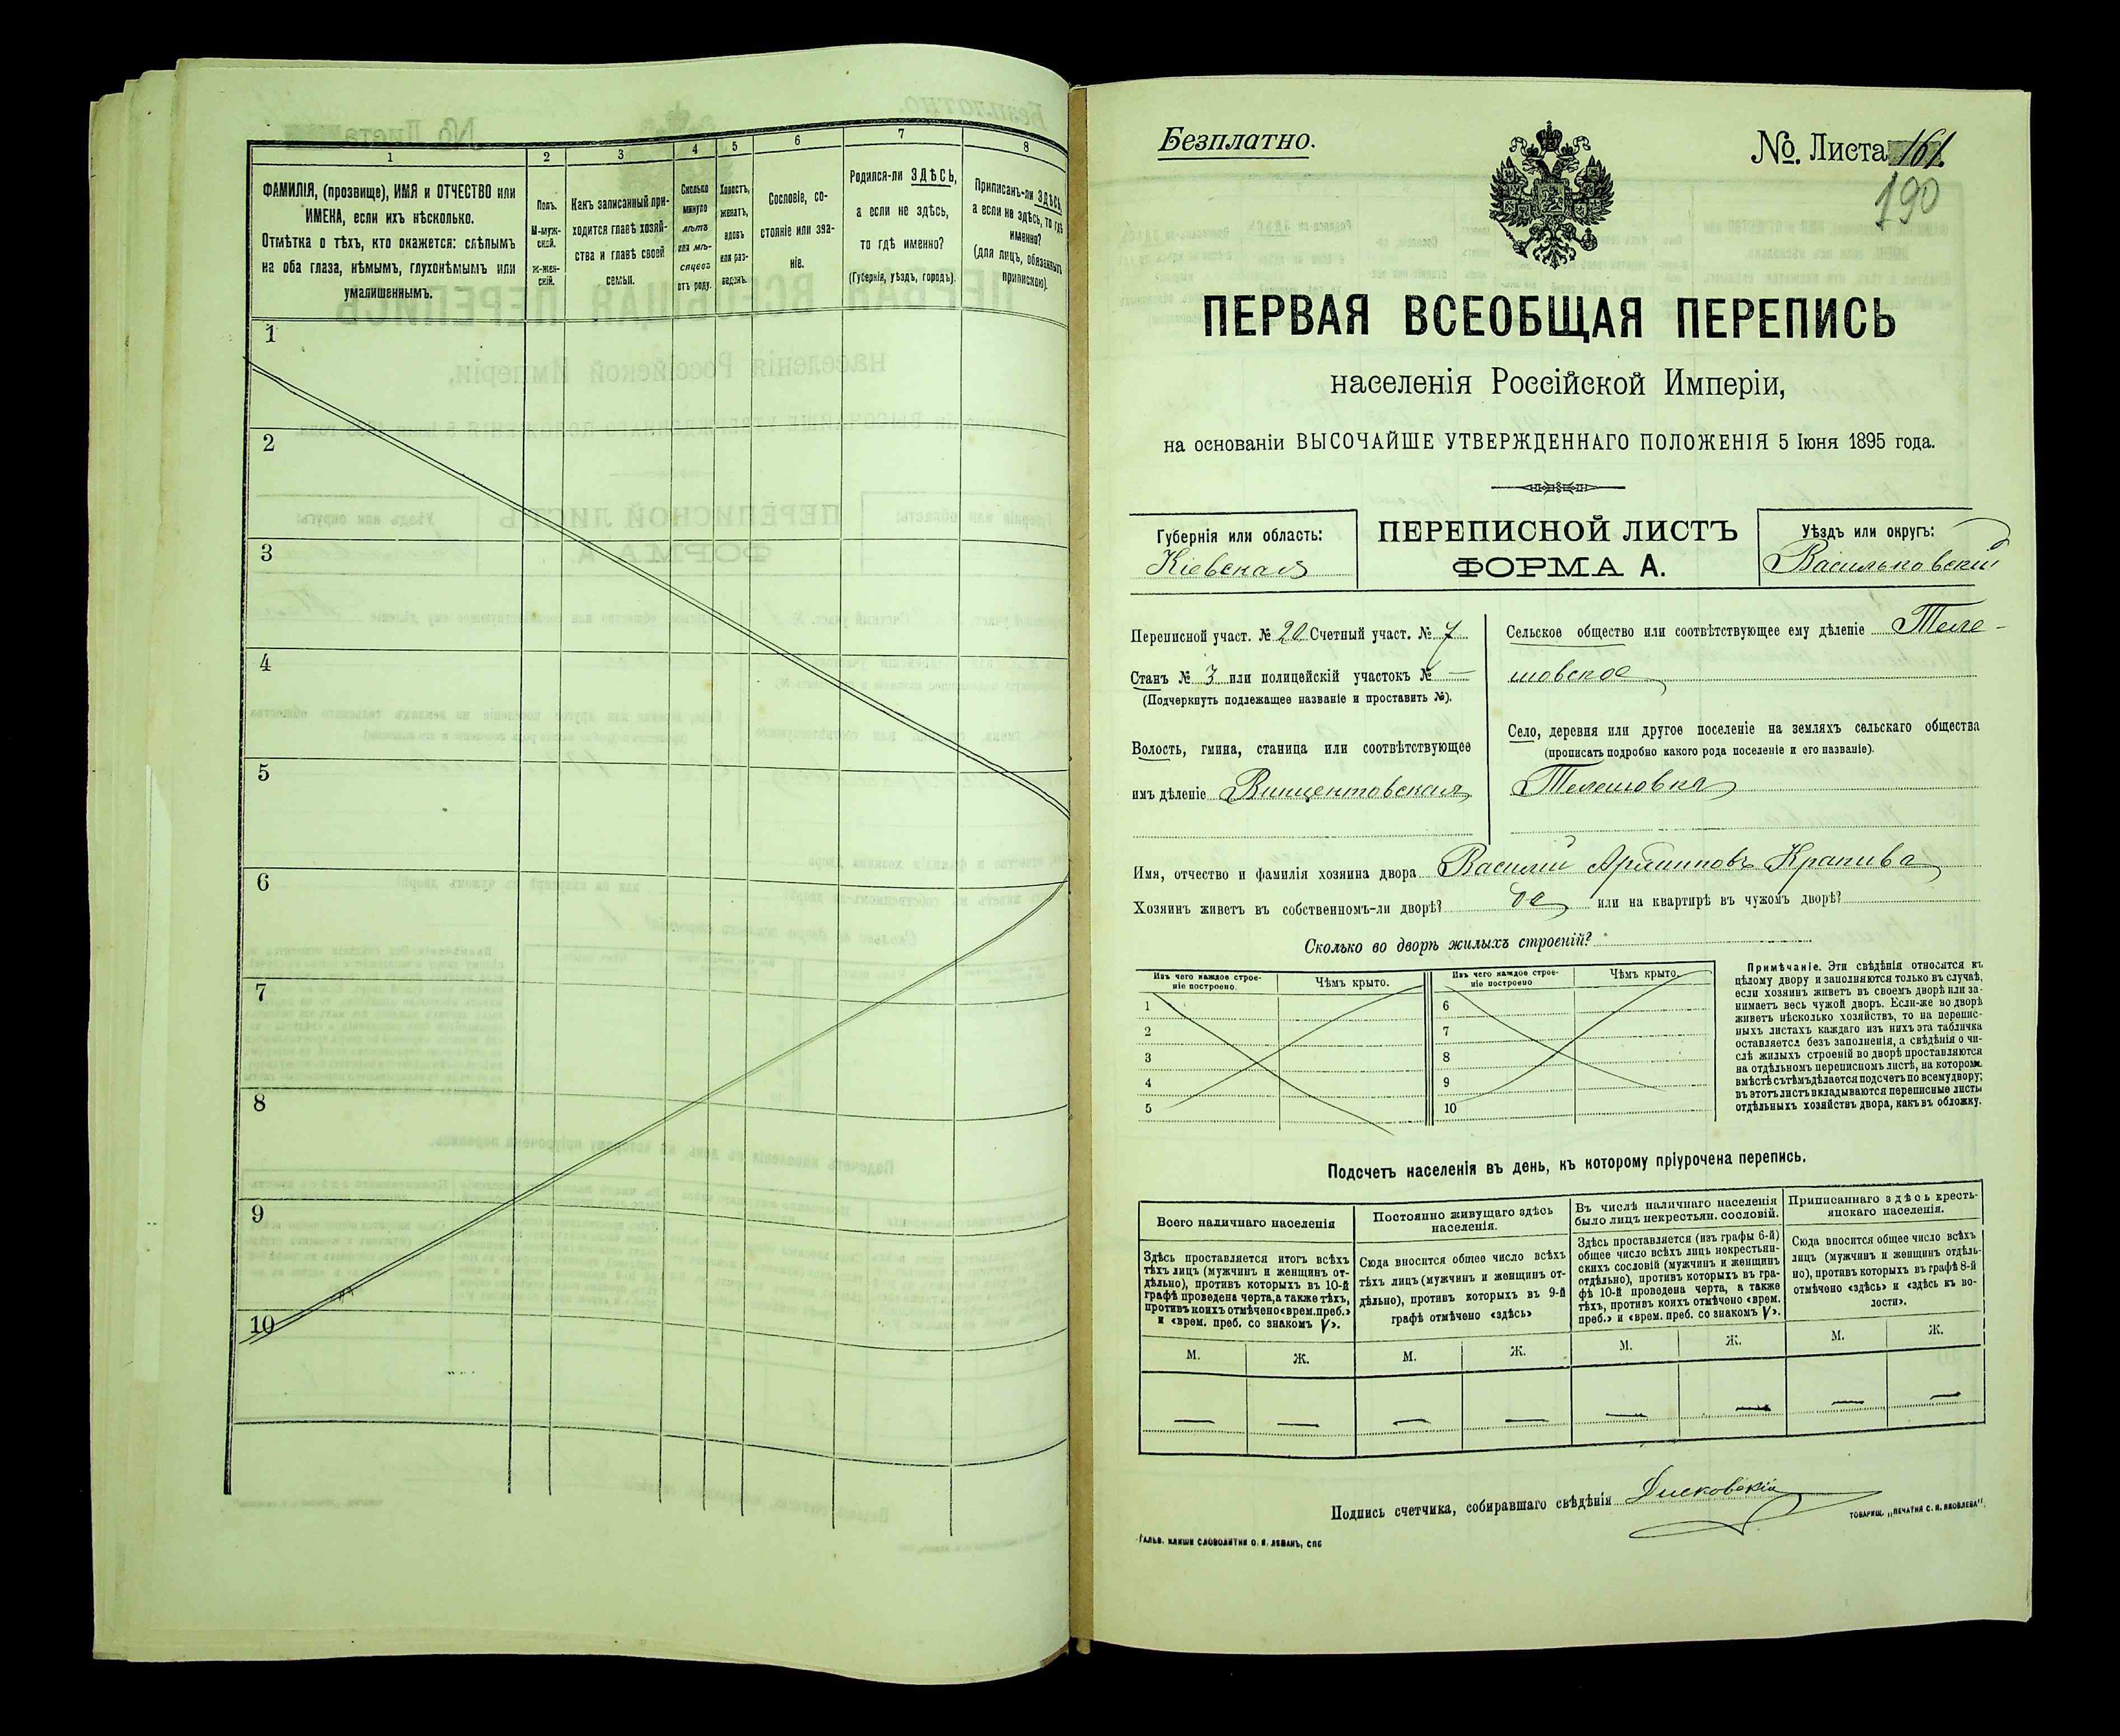 1
2
3
4
5
6
7
8
ФАМИЛІЯ, (прозвище), ИМЯ и ОТЧЕСТВО или
ИМЕНА, если ихъ нѣсколько.
Отмѣтка о тѣхъ, кто окажется: слѣпымъ
на оба глаза, нѣмымъ, глухонѣмымъ или
умалишеннымъ.
Полъ.
М-муж-
ской.
ж-жен-
скій.
Какъ записанный при-
ходится главѣ хозяй-
ства и главѣ своей
семьи.
Сколько
минуло
лѣтъ
или мѣ-
сяцевъ
отъ роду.
Холостъ,
женатъ,
вдовъ
или раз-
веденъ.
Сословіе, со-
стояніе или зва-
ніе.
Родился-ли ЗДѢСЬ,
а если не здѣсь,
то гдѣ именно?
(Губернія, уѣздъ, городъ).
Приписанъ-ли ЗДѢСЬ,
а если не здѣсь, то гдѣ
именно?
(для лицъ, обязанныхъ
припискою).
1
2
3
4
5
6
7
8
9
10
Безплатно.
№. Листа 161.
190
ПЕРВАЯ ВСЕОБЩАЯ ПЕРЕПИСЬ
населенія Россійской Имперіи,
на основаніи ВЫСОЧАЙШЕ УТВЕРЖДЕННАГО ПОЛОЖЕНІЯ 5 Іюня 1895 года.
Губернія или область:
Кіевская
ПЕРЕПИСНОЙ ЛИСТЪ
ФОРМА А.
Уѣздъ или округъ:
Васильковскій
Переписной участ. № 20 Счетный участ. № 7
Станъ № 3 или полицейскій участокъ № —
(Подчеркнуть подлежащее названіе и проставить №).
Волость, гмина, станица или соотвѣтствующее
имъ дѣленіе Винцентовская
Сельское общество или соотвѣтствующее ему дѣленіе Теле-
шовское
Село, деревня или другое поселеніе на земляхъ сельскаго общества
(прописать подробно какого рода поселеніе и его названіе).
Телешовка
Имя, отчество и фамилія хозяина двора Василій Крапива
Хозяинъ живетъ въ собственномъ-ли дворѣ? да или на квартирѣ въ чужомъ дворѣ?
Сколько во дворѣ жилыхъ строеній?
Изъ чего каждое строе-
ніе построено.
Чѣмъ крыто.
Изъ чего каждое строе-
ніе построено
Чѣмъ крыто.
1
2
3
4
5
6
7
8
9
10
Примѣчаніе. Эти свѣдѣнія относятся къ
цѣлому двору и заполняются только въ случаѣ,
если хозяинъ живетъ въ своемъ дворѣ или за-
нимаетъ весь чужой дворъ. Если-же во дворѣ
живетъ нѣсколько хозяйствъ, то на перепис-
ныхъ листахъ каждаго изъ нихъ эта табличка
оставляется безъ заполненія, а свѣдѣнія о чи-
слѣ жилыхъ строеній во дворѣ проставляются
на отдѣльномъ переписномъ листѣ, на которомъ
вмѣстѣ съ тѣмъ дѣлается подсчетъ по всему двору;
въ этотъ листъ вкладываются переписные листы
отдѣльныхъ хозяйствъ двора, какъ въ обложку.
Подсчетъ населенія въ день, къ которому пріурочена перепись.
Всего наличнаго населенія
Здѣсь проставляется итогъ всѣхъ
тѣхъ лицъ (мужчинъ и женщинъ от-
дѣльно), противъ которыхъ въ 10-й
графѣ проведена черта, а также тѣхъ,
противъ коихъ отмѣчено «врем. преб.»
и «врем. преб. со знакомъ V».
Постоянно живущаго здѣсь
населенія.
Сюда вносится общее число всѣхъ
тѣхъ лицъ (мужчинъ и женщинъ от-
дѣльно), противъ которыхъ въ 9-й
графѣ отмѣчено «здѣсь»
Въ числѣ наличнаго населенія
было лицъ некрестьян. сословій.
Здѣсь проставляется (изъ графы 6-й)
общее число всѣхъ лицъ некрестьян-
скихъ сословій (мужчинъ и женщинъ
отдѣльно), противъ которыхъ въ гра-
фѣ 10-й проведена черта, а также
тѣхъ, противъ коихъ отмѣчено «врем.
преб.» и «врем. преб. со знакомъ V».
Приписаннаго здѣсь кресть-
янскаго населенія.
Сюда вносится общее число всѣхъ
лицъ (мужчинъ и женщинъ отдѣль-
но), противъ которыхъ въ графѣ 8-й
отмѣчено «здѣсь» и «здѣсь къ во-
лости».
М. Ж. М. Ж. М. Ж. М. Ж.
— — — — — — — —
Подпись счетчика, собиравшаго свѣдѣнія
ГАЛЬВ. КЛИШЕ СЛОВОЛИТНИ О. И. ЛЕМАНЪ, СПБ
ТОВАРИЩ. „ПЕЧАТНЯ С. П. ЯКОВЛЕВА".